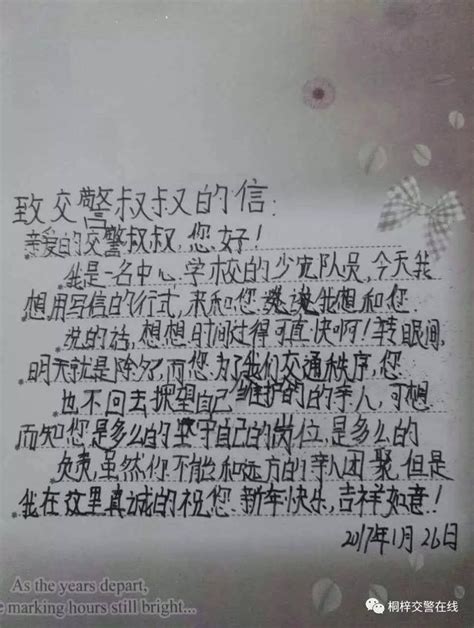 致交警叔叔的信:
亲爱的交警叔叔,您好!
我是一名中心学校的少先队员,今天我
想用写信的行式,来和您说说我想和您
说的话,想想时间过得可真快啊!转眼间,
明天就是除夕,而您为了我们交通秩序,您
也不回去探望自己维护的的亲人,可想
而知您是多么的坚守自己的岗位,是多么的
负责,虽然你不能和远方的亲人团聚,但是
我在这里真诚的祝您 新年快乐,吉祥如意!
2017年1月26日
As the years depart,
e marking hours still bright...
桐梓交警在线